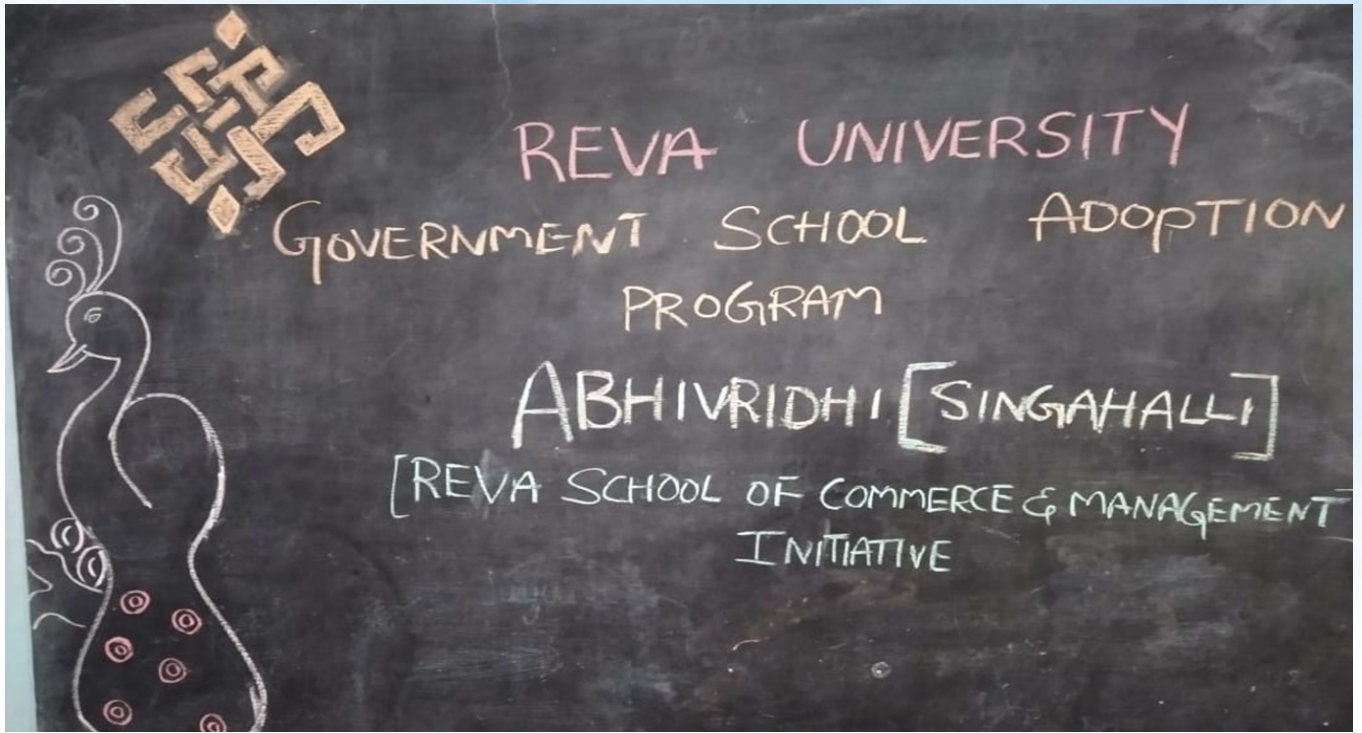 REVA UNIVERSITY
GOVERNMENT SCHOOL ADOPTION
PROGRAM
ABHIVRIDHI [SINGAHALLI]
[REVA SCHOOL OF COMMERCE & MANAGEMENT
INITIATIVE